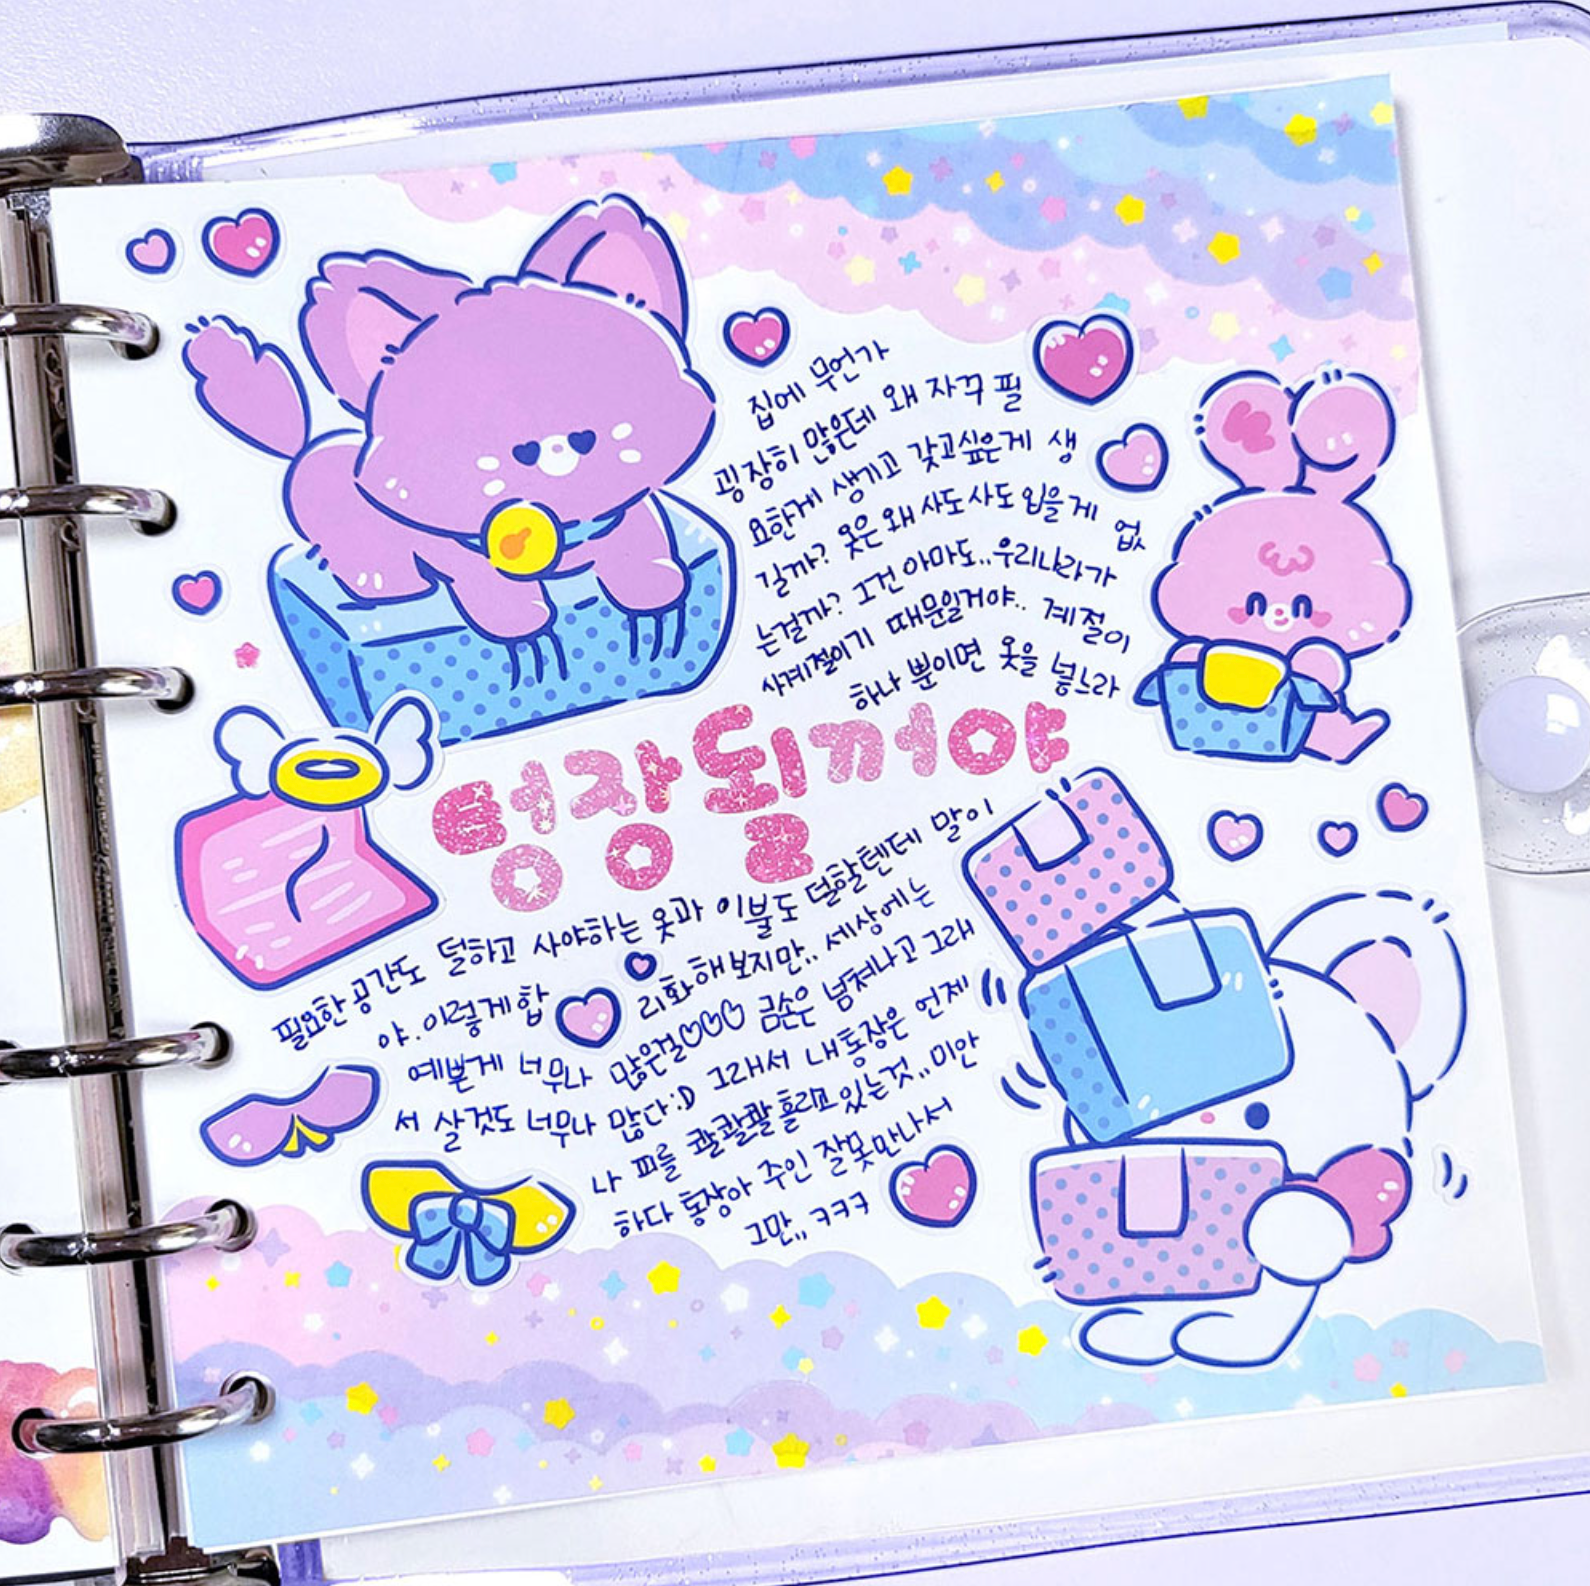 집에 무언가
굉장히 많은데 왜 자꾸 필
요한게 생기고 갖고싶은게 생
길까? 옷은 왜 사도사도 입을게 없
는걸까? 그건 아마도..우리나라가
사계절이기 때문일거야.. 계절이
하나 뿐이면 옷을 넣느라
텅장될꺼야
필요한 공간도 덜하고 사야하는 옷과 이불도 덜할텐데 말이
야. 이렇게 합리화해보지만.. 세상에는
예쁜게 너무나 많은걸♡♡♡ 금손은 넘쳐나고 그래
서 살것도 너무나 많다:D 그래서 내통장은 언제
나 피를 콸콸콸 흘리고 있는것.. 미안
하다 통장아 주인 잘못만나서
그만,, ㅋㅋㅋ